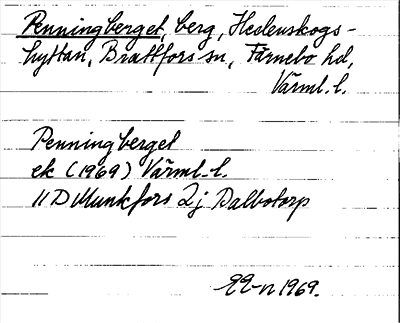 Penningberget, berg, Hedenskogs-
hyttan, Brattfors sn, Färnebo hd,
Värml. l.
Penningberget
ek (1969) Värml. l.
11D Munkfors 2j Dalbotorp
1969.